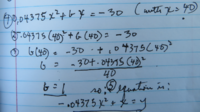 ① 0.04375x² + 6x = -30 (with x = 40)
② -.04375(40)² + 6(40) = -30
③ 6(40) = -30 + .04375(40)²
6 = -30 + .04375(40)²
40
6 = 1 so, equation is:
-.04375x² + x = y